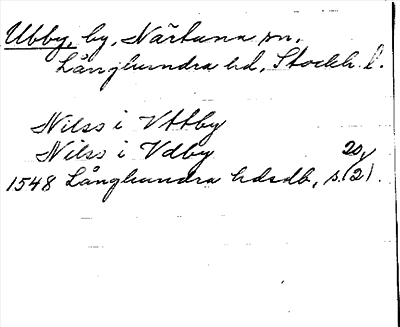 Ubby, by, Närtuna sn,
Långhundra hd, Stockh. l.
Nilss i Vttby
Nilss i Vdby 20,
1548 Långhundra hdsdb, s. (2).